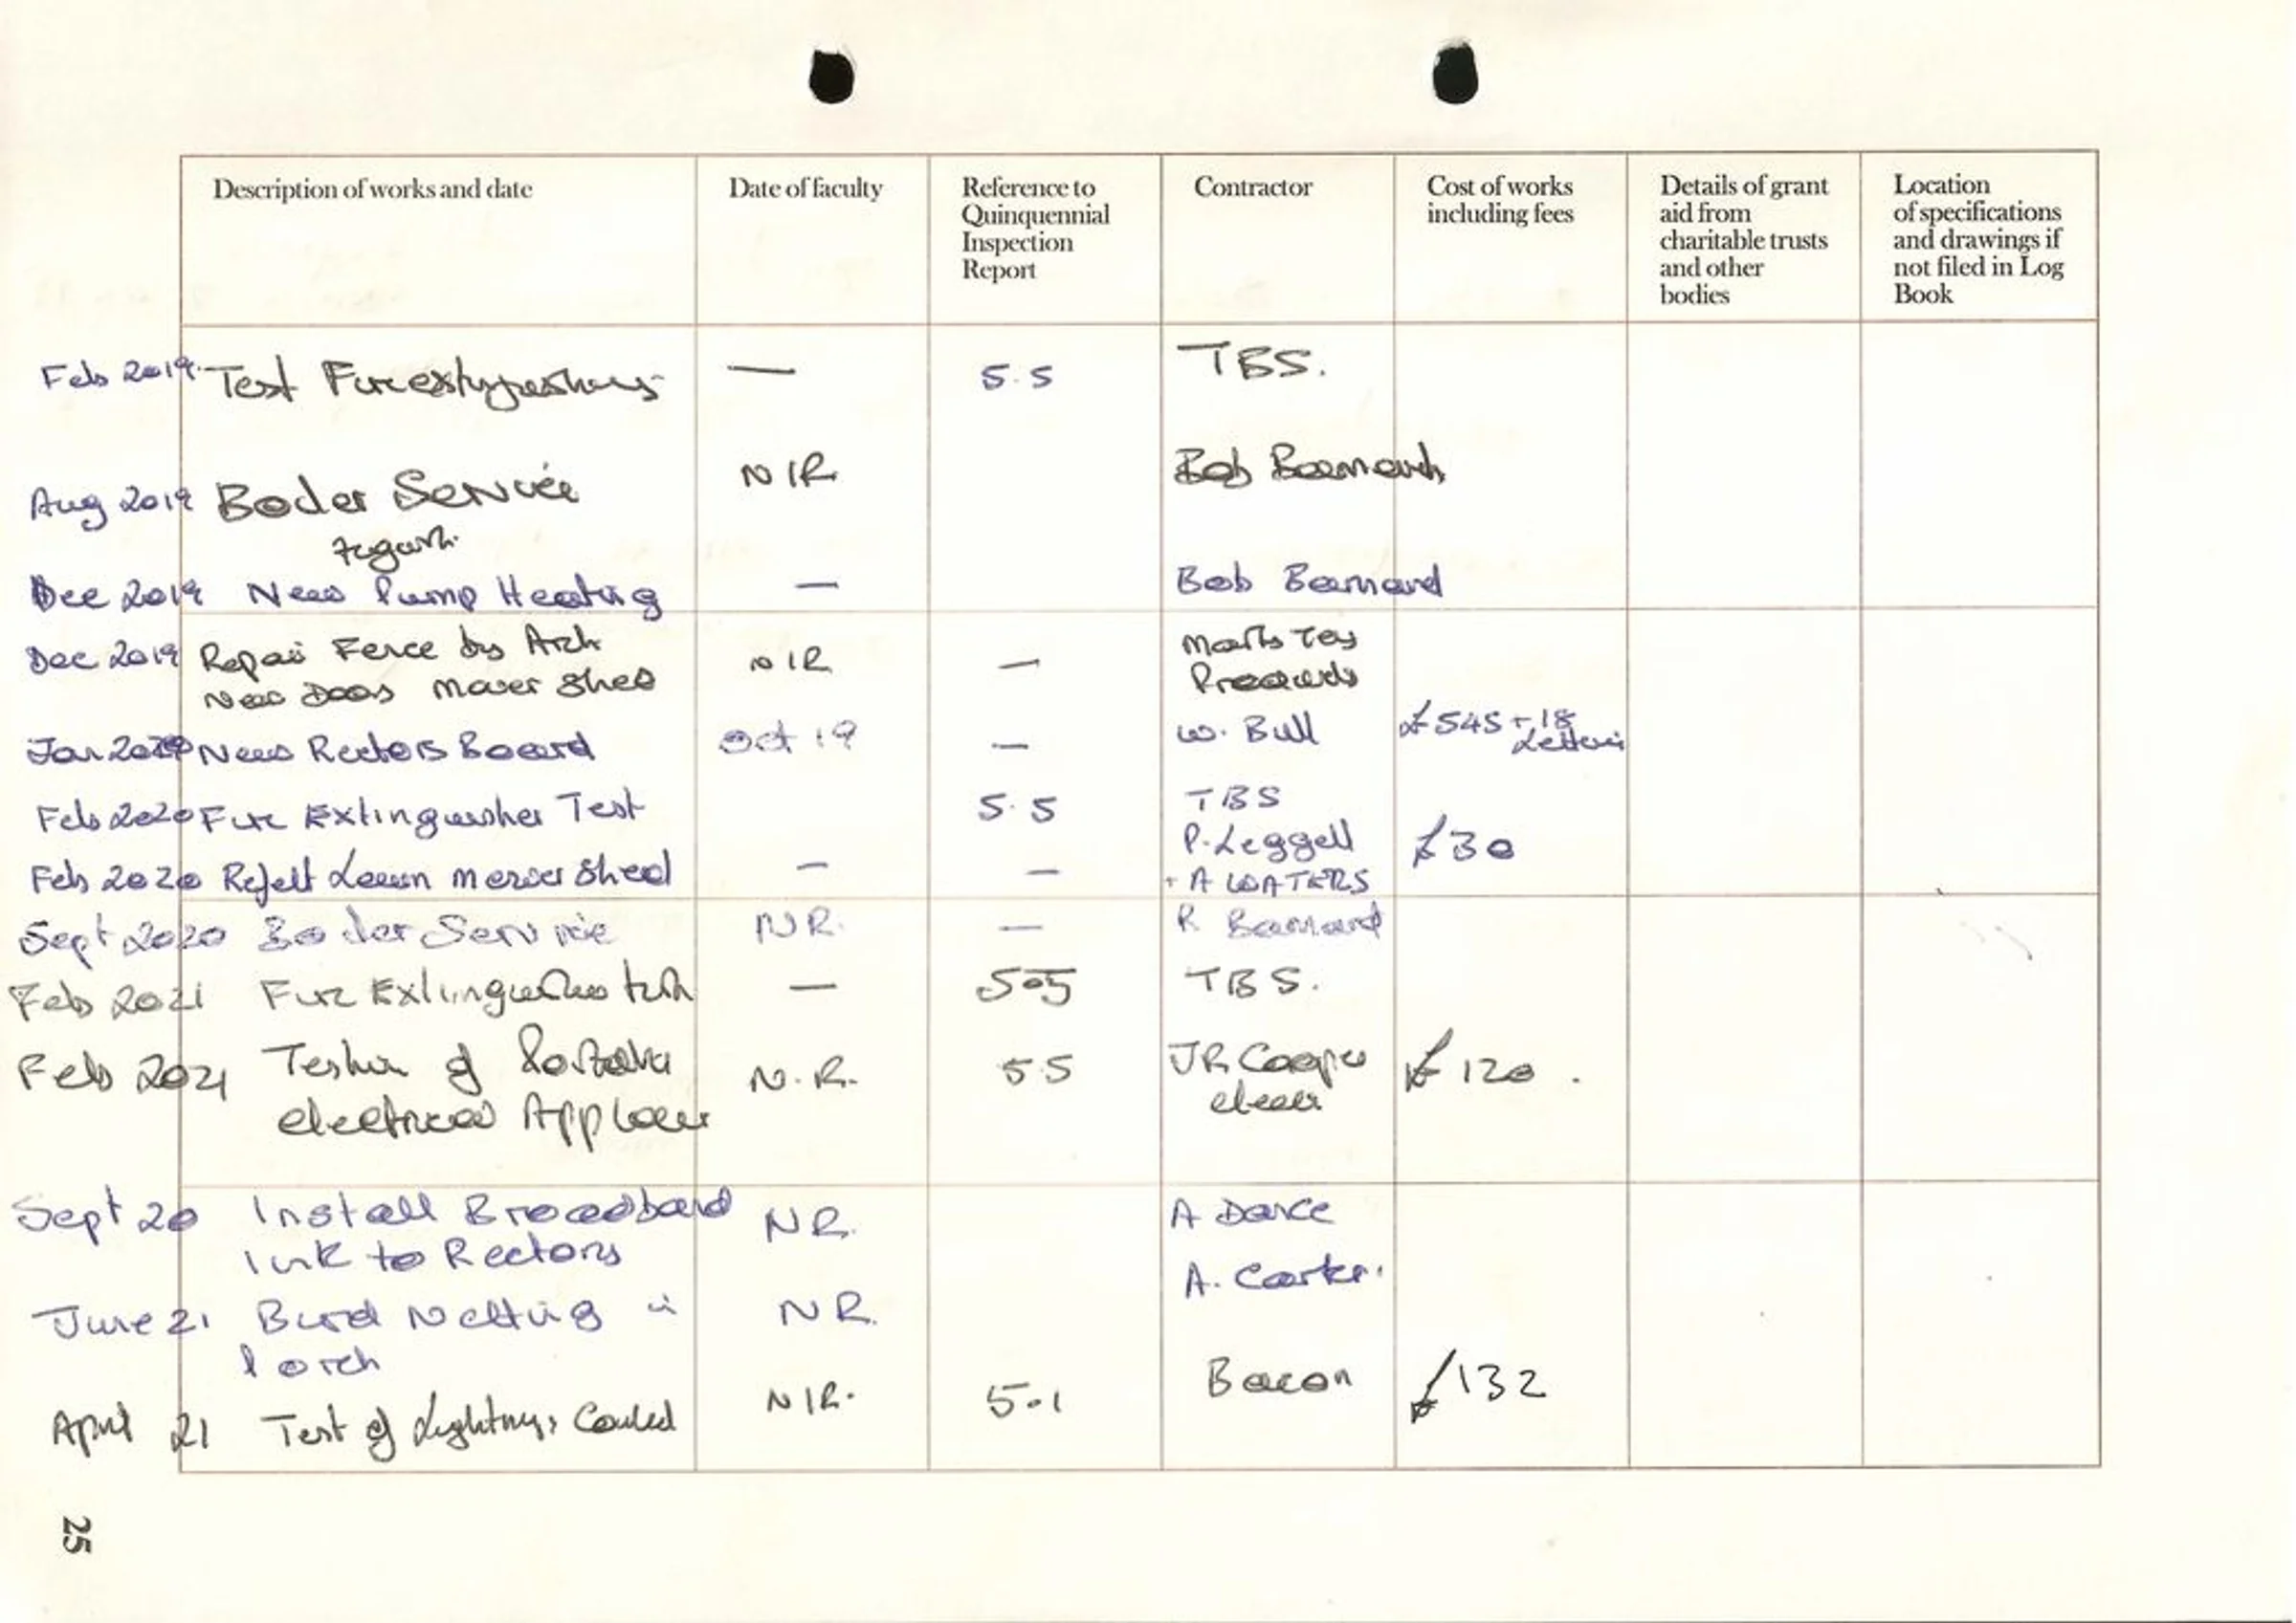 Description of works and date Date of faculty Reference to Quinquennial Inspection Report Contractor Cost of works including fees Details of grant aid from charitable trusts and other bodies Location of specifications and drawings if not filed in Log Book
Feb 2019 Test Fire extinguishers — 5.5 TBS.
Aug 2019 Boiler Service N/R Bob Barnard
Dec 2019 New Pump Heating — Bob Barnard
Dec 2019 Repair Fence by Arch N/R — Marks Tey
New Doors mower shed
W. Bull £545 + 18
Jan 2020 New Rectors Board Oct 19 — Letters
Feb 2020 Fire Extinguisher Test 5.5 TBS
P. Leggett £30
Feb 2020 Refelt Lawn mower Shed — — + A WATERS
Sept 2020 Boiler Service N.R. — R Barnard
Feb 2021 Fire Extinguisher — 5.5 TBS.
Feb 2021 Testing of Portable N.R. 5.5 JR Cooper £120.
electrical Appliances
Sept 20 Install Broadband NR. A Dance
link to Rectors
A. Carter.
June 21 Bird Netting in NR.
Porch
Bacon £132
April 21 Test of Lightning N/R. 5.1
25